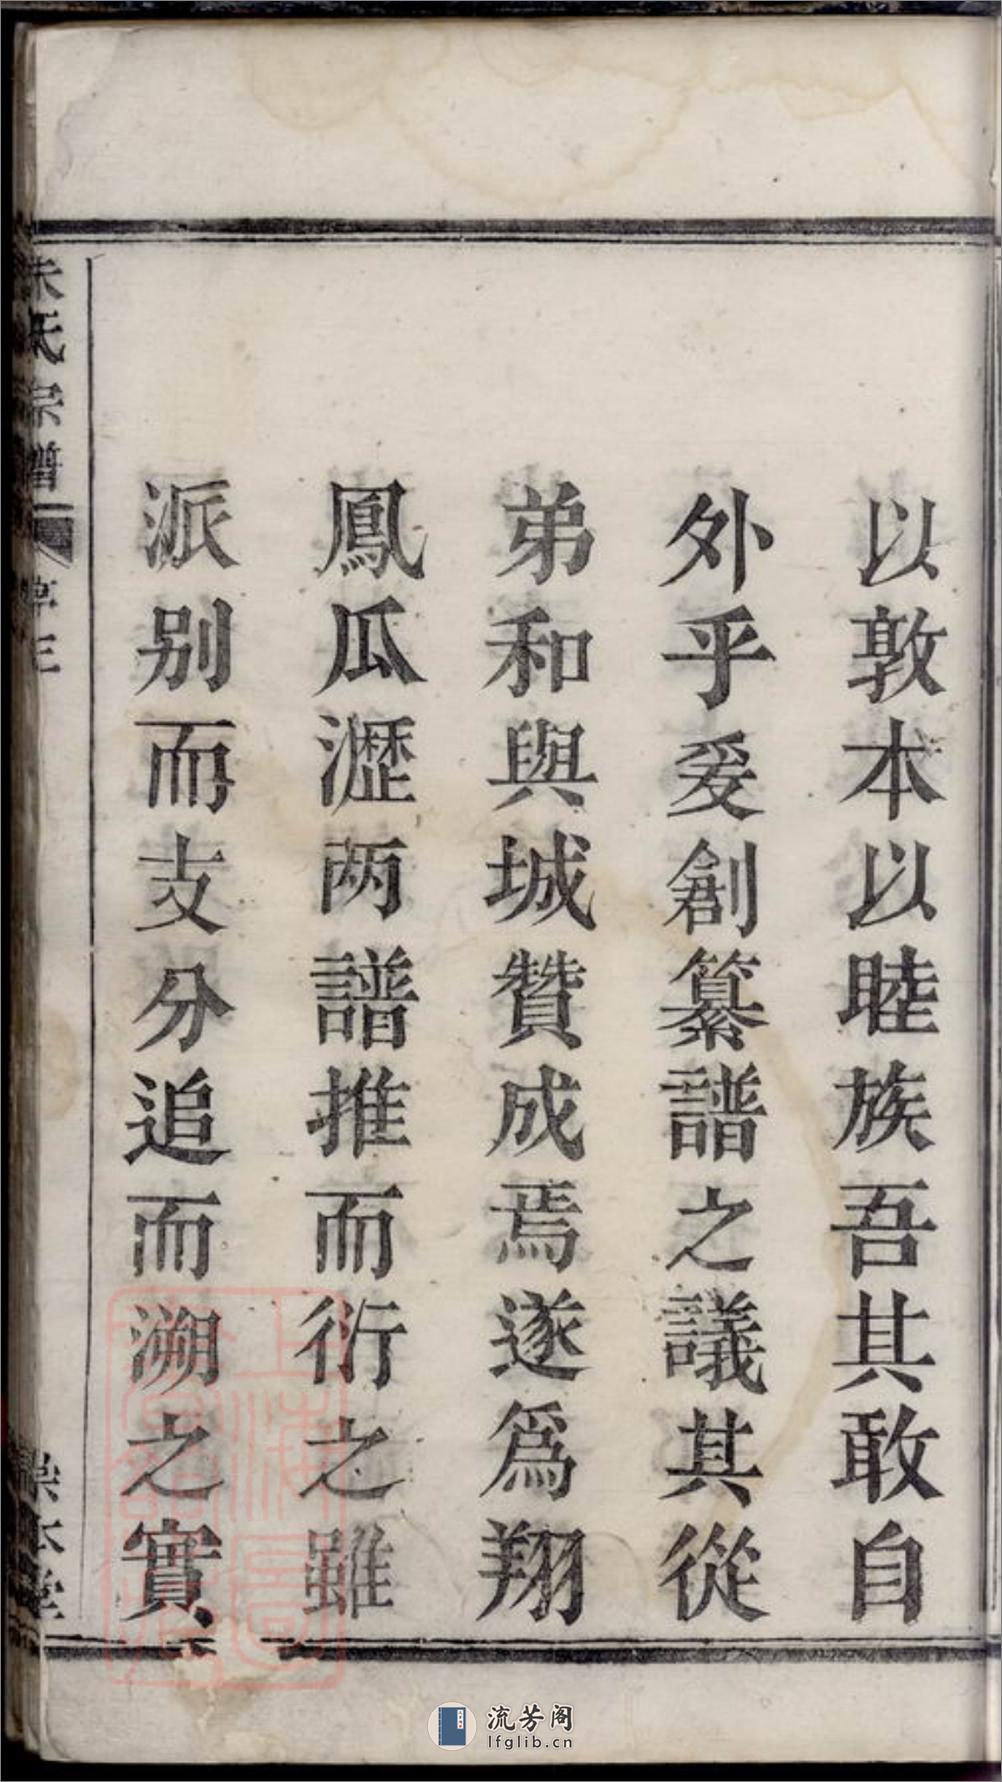 以敦本以睦族吾其敢自
外乎爰創纂譜之議其從
弟和與城贊成焉遂爲翔
鳳瓜瀝两譜推而衍之雖
派别而支分追而溯之實
氏宗譜
序三
堂
流芳阁
lfglib.cn